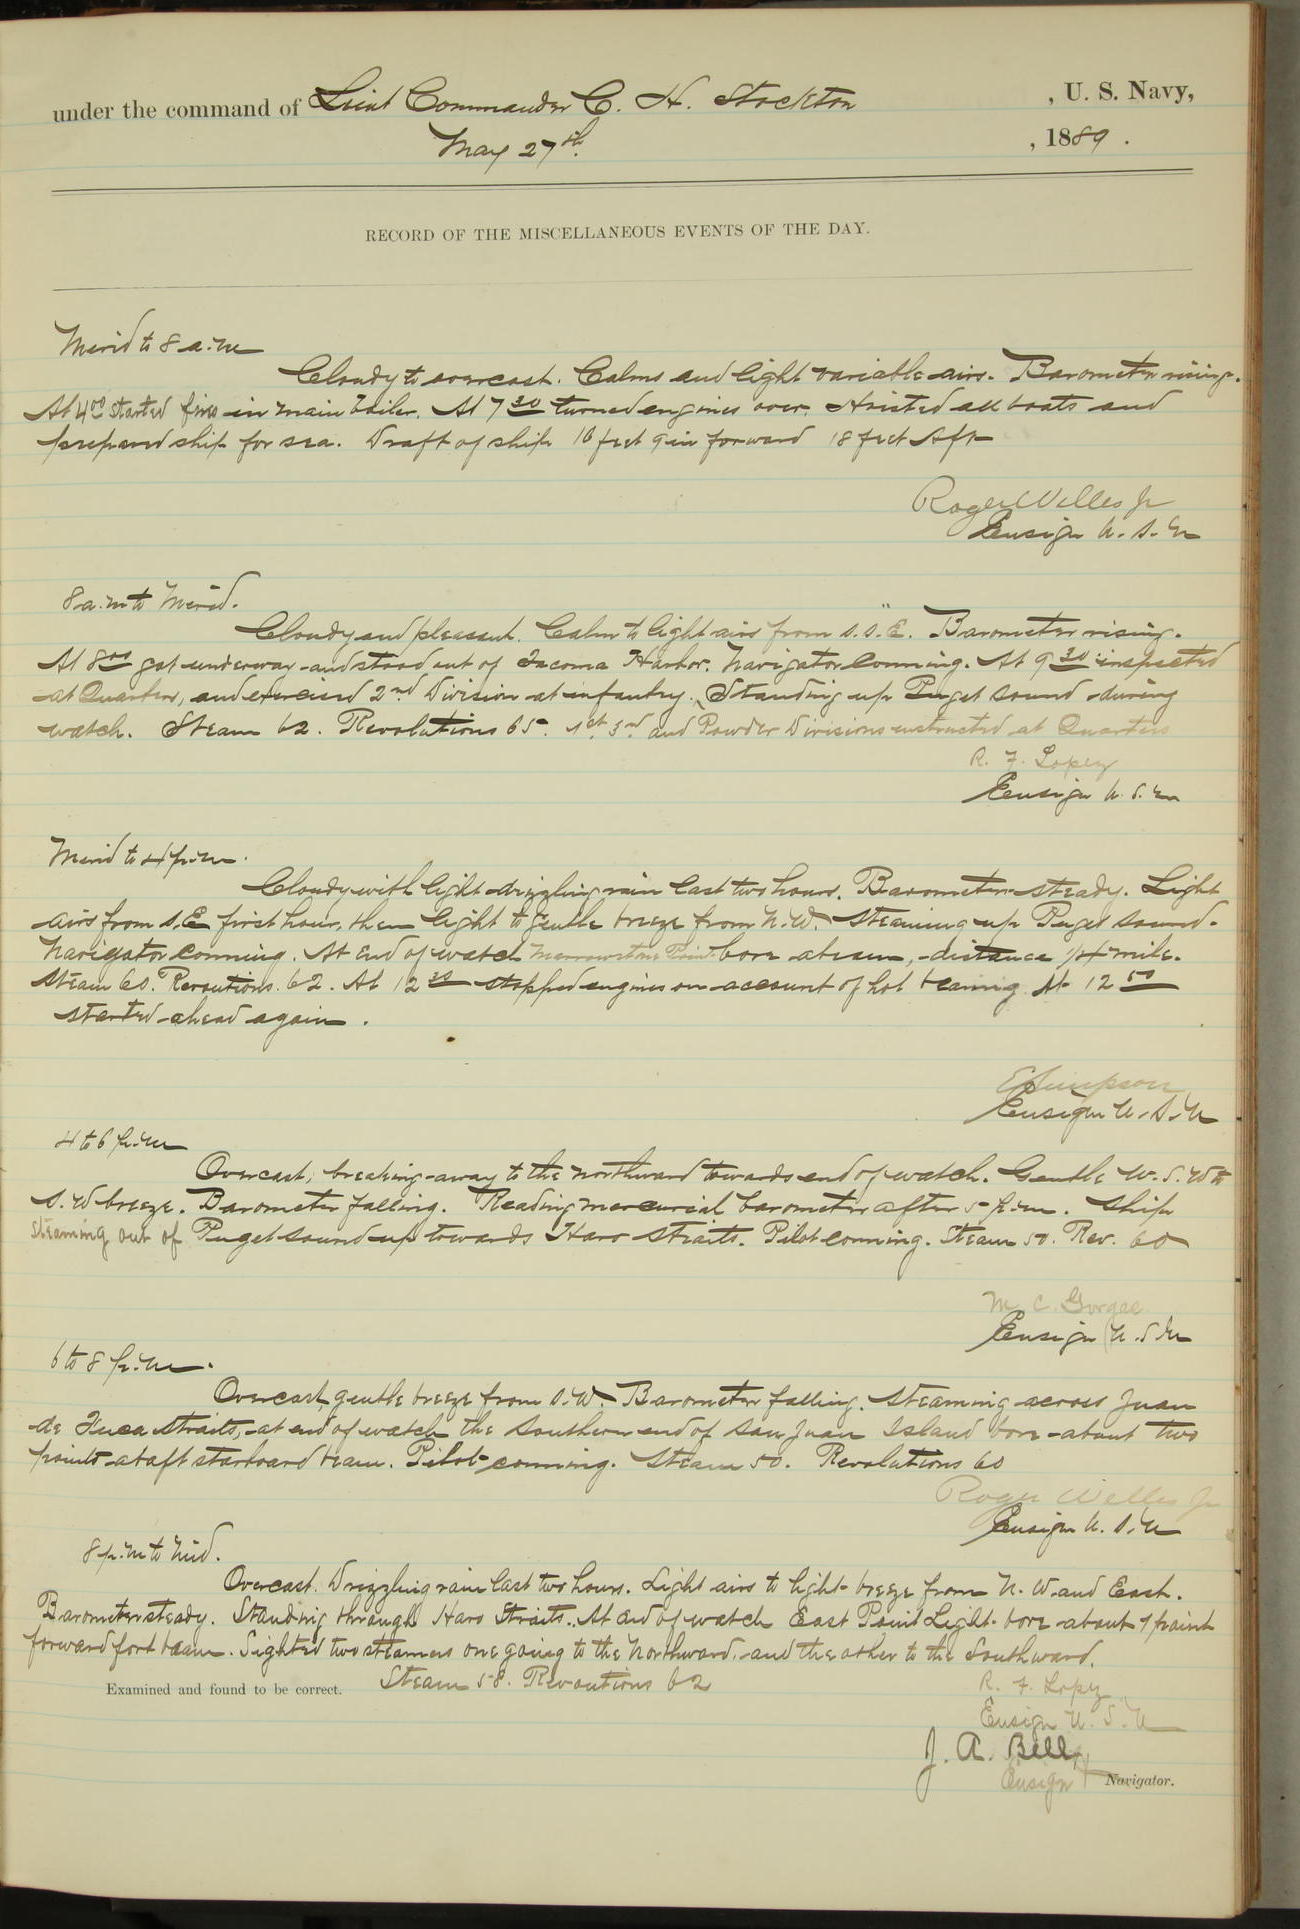 under the command of Lieut Commander C. H. Stockton, U. S. Navy,
May 27th, 1889.
RECORD OF THE MISCELLANEOUS EVENTS OF THE DAY.
Merid to 8 a.m
Cloudy to overcast. Calms and light variable airs. Barometer rising.
At 4 00 started fires in main boiler. At 7 30 turned engines over. Hoisted all boats and
prepared ship for sea. Draft of ship 16 feet 9 in forward 18 feet Aft
Roger Welles Jr
Ensign U. S. N
8 a.m to Merid.
Cloudy and pleasant. Calm to light airs from S.S.E. Barometer rising.
At 8 00 got underway and stood out of Tacoma Harbor. Navigator conning. At 9 30 inspected
at Quarters, and exercised 2nd Division at infantry. Standing up Puget Sound during
watch. Steam 62. Revolutions 65. 1st, 3rd and Powder Divisions instructed at Quarters
R. F. Lopez
Ensign U. S. N
Merid to 4 p.m.
Cloudy with light drizzling rain last two hours. Barometer steady. Light
airs from S.E first hour, then light to gentle breeze from N.W. Steaming up Puget Sound.
Navigator conning. At end of watch Marrowstone Point bore abeam, distance 1/4 mile.
Steam 60. Revoutions. 62. At 12 30 stopped engines on account of hot bearing. At 12 50
started ahead again.
E Simpson
Ensign U. S. N
4 to 6 p.m
Overcast, breaking away to the northward towards end of watch. Gentle W.S.W to
S.W breeze. Barometer falling. Reading mercurial barometer after 5 p.m. Ship
Steaming out of Puget Sound up towards Haro Straits. Pilot conning. Steam 50. Rev. 60
M. C. Gorgas
Ensign U. S. N
6 to 8 p.m.
Overcast, gentle breeze from S.W. Barometer falling. Steaming across Juan
de Fuca Straits, at end of watch the Southern end of San Juan Island bore about two
points abaft starboard beam. Pilot conning. Steam 50. Revolutions 60
Roger Welles Jr
Ensign U. S. N
8 p.m to Mid.
Overcast. Drizzling rain last two hours. Light airs to light breeze from N. W. and East.
Barometer steady. Standing through Haro Straits. At end of watch East Point Light bore about 1 point
forward port beam. Sighted two steamers one going to the Northward, and the other to the Southward.
Steam 58. Revoutions 62
R. F. Lopez
Ensign U. S. N
Examined and found to be correct.
J. A. Bell
Ensign Navigator.